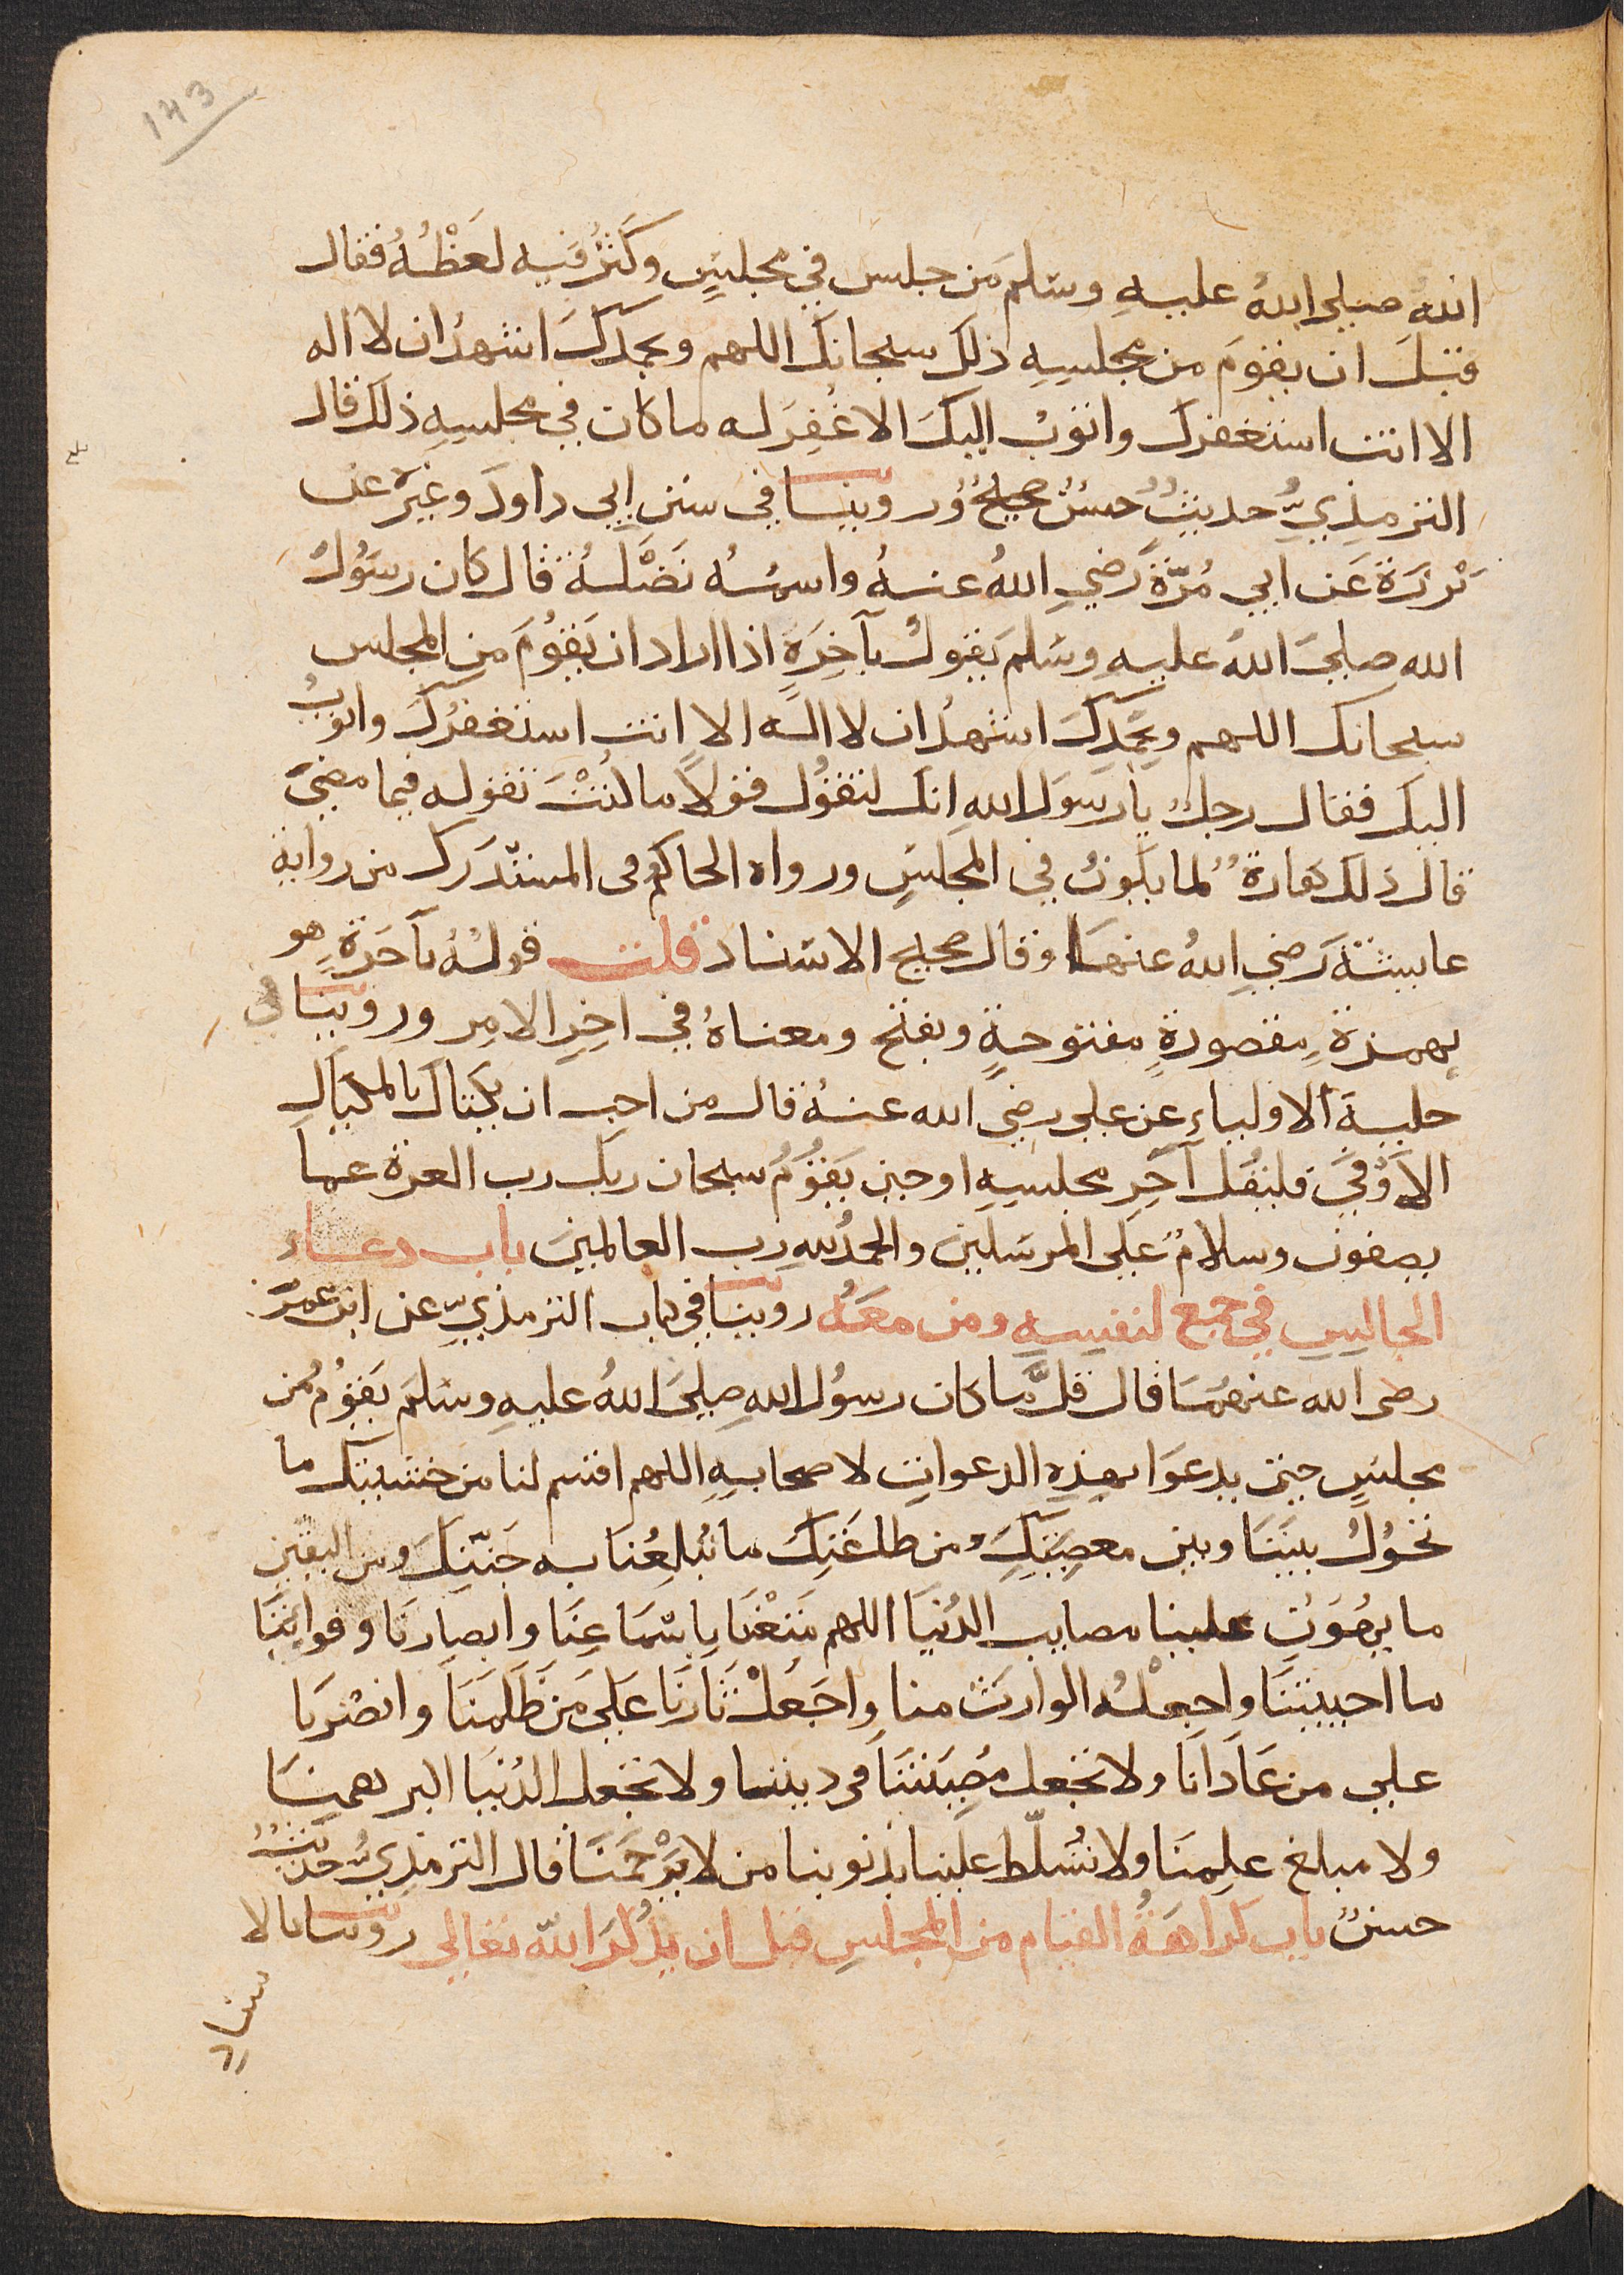 143
الله صلى الله عليهِ وسلم مَن جلس في مجلسٍ وكَثُرَ فيه لَعَظُهُ فقال
قبْلَ ان يقومَ من مجلسِهِ ذلكَ سبحانكَ اللهم وبحمدكَ اشهدُ ان لا اله
الا انت استغفرك واتوبُ اليكَ الا غُفِرَ له ما كان في مجلسِهِ ذلك قال
الترمذيُّ حديثٌ حسنٌ صحيحٌ وروينا في سنن ابي داودَ وغيرهِ عن
بَرزَة عَن ابي مُرّةَ رَضي اللهُ عنهُ واسمُهُ نَضْلَةُ قال كان رسُولُ
الله صلىَ اللهُ عليهِ وسَلم يَقولُ بآخِرَةٍ اذا اراد ان يَقومَ من المجلس
سبحانك اللهم وبحَمدِكَ اشهدُ ان لا اله الا انت استغفرُكَ واتوبُ
اليكَ فقال رجلٌ يا رسولَ اللهِ انك لتقوُل قولاً ما كُنْتَ تقوله فيما مضىَ
قال ذلك كفارةٌ لما يكونُ في المجلسِ ورواه الحاكم في المستدَرك من رواية
عايشةَ رَضي اللهُ عنها وقال صحيح الاسناد قلت قولهُ بآخَرةٍ هو
بهمزةٍ مقصورةٍ مفتوحةٍ وبفتح ومعناهُ في اخِرِ الامِر وروينا في
حليةَ الاولياءِ عن علي رضي الله عنهُ قال من احب ان يكتال بالمكيالِ
الاَوْفىَ فليقُل آخِرِ مجلسِهِ او حين يَقوُمُ سبحان ربك رب العزة عما
يصفون وسلامٌ على المرسَلينَ والحمدُ للهِ رب العالمينَ باب دعاء
الجالِسِ في جمع لنفسِهِ ومن معَهُ روينا في كتاب الترمذيِّ عن ابن عمرَ
رضى الله عنهمَا قال قلَّما كان رسوُل اللهِ صلىَ اللهُ عليهِ وسَلمَ يَقوُمُ من
مجلسٍ حيَن يدعوَا بهذِهِ الدعواتِ لاصحابِهِ اللهم اقسم لنا من خشيتِك ما
تحُولُ بينَنَا وبين معصِيَتِكَ ومن طاعَتِكَ ما تُبلِغُنا به جَنّتِكَ ومن اليقين
ما يهُوِّنِ علينا مصايب الدُنيَا اللهم مَتِّعْنَا باسْمَاعِنَا وابصارنَا وقواتِنَا
ما احييتنَا واجعلهُ الوارثَ منا واجَعلْ ثَارنَا عَلىَ مَن ظَلَمَنَا وانصُرنا
على من عَادَانَا ولا تجعل مُصِيَبتَنَا في ديننا ولا تجعل الدُنيَا اكبر همنَا
ولا مبلغ عِلمنَا ولا تُسَلّط علَينا بذنوبنا من لا يَرْحَمَنَا قال الترمذيُّ حديثٌ
حسنٌ باب كراهَةُ القيام من المجلسِ قبل ان يذكُرَ الله تعالى روينا بالا
سنادِ